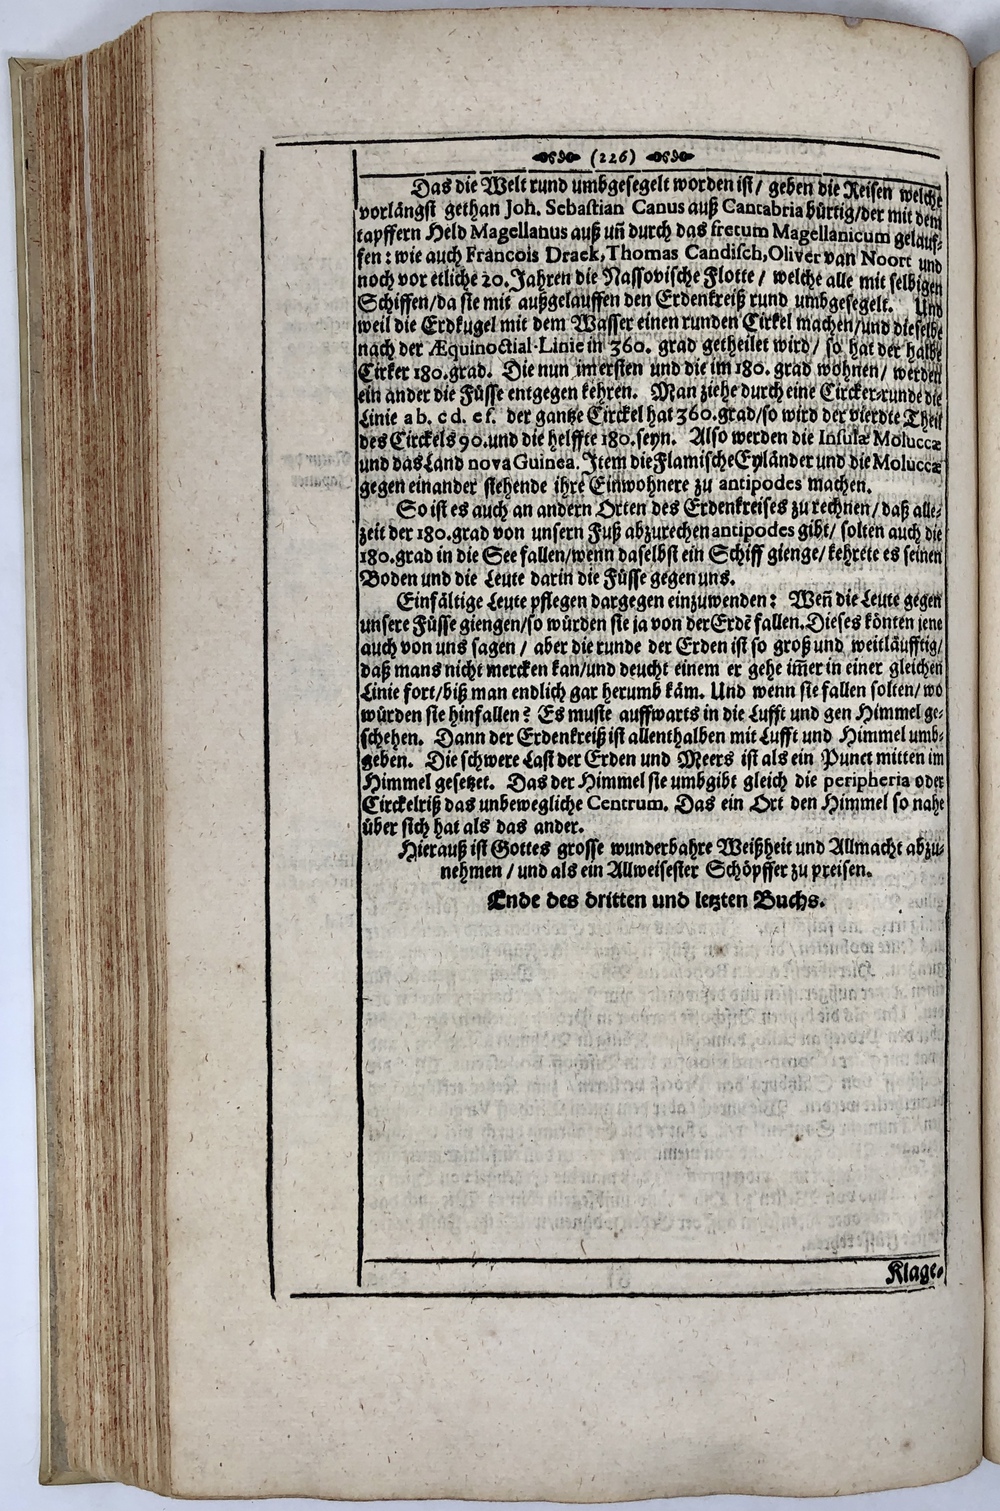 (226)
Das die Welt rund umbgesegelt worden ist / geben die Reisen welche
vorlängst gethan Joh. Sebastian Canus auß Cantabria bürtig/der mit dem
tapffern Held Magellanus auß uñ durch das fretum Magellanicum gelauf-
fen: wie auch Francois Draek, Thomas Candisch, Oliver van Noort und
noch vor etliche 20. Jahren die Nassovische Flotte / welche alle mit selbigen
Schiffen/da sie mit außgelauffen den Erdenkreiß rund umbgesegelt. Und
weil die Erdkugel mit dem Wasser einen runden Cirkel machen/und dieselbe
nach der Æquinoctial-Linie in 360. grad getheilet wird / so hat der halbe
Cirker 180. grad. Die nun im ersten und die im 180. grad wohnen / werden
ein ander die Füsse entgegen kehren. Man ziehe durch eine Circker-runde die
Linie a b. c d. e f. der gantze Circkel hat 360. grad/so wird der vierdte Theil
des Circkels 90. und die helffte 180. seyn. Also werden die Insulæ Moluccæ
und das Land nova Guinea. Item die Flamische Eyländer und die Moluccæ
gegen einander stehende ihre Einwohnere zu antipodes machen.
So ist es auch an andern Orten des Erdenkreises zu rechnen / daß alle-
zeit der 180. grad von unsern Fuß abzurechen antipodes gibt / solten auch die
180. grad in die See fallen/wenn daselbst ein Schiff gienge / kehrete es seinen
Boden und die Leute darin die Füsse gegen uns.
Einfältige Leute pflegen dargegen einzuwenden: Weñ die Leute gegen
unsere Füsse giengen/so würden sie ja von der Erdē fallen. Dieses könten jene
auch von uns sagen / aber die runde der Erden ist so groß und weitläufftig /
daß mans nicht mercken kan/und deucht einem er gehe im̃er in einer gleichen
Linie fort/biß man endlich gar herumb käm. Und wenn sie fallen solten/ wo
würden sie hinfallen? Es muste auffwarts in die Lufft und gen Himmel ge-
schehen. Dann der Erdenkreiß ist allenthalben mit Lufft und Himmel umb-
geben. Die schwere Last der Erden und Meers ist als ein Punct mitten im
Himmel gesetzet. Das der Himmel sie umbgibt gleich die peripheria oder
Circkelriß das unbewegliche Centrum. Das ein Ort den Himmel so nahe
über sich hat als das ander.
Hierauß ist Gottes grosse wunderbahre Weißheit und Allmacht abzu-
nehmen / und als ein Allweisester Schöpffer zu preisen.
Ende des dritten und letzten Buchs.
Klage-